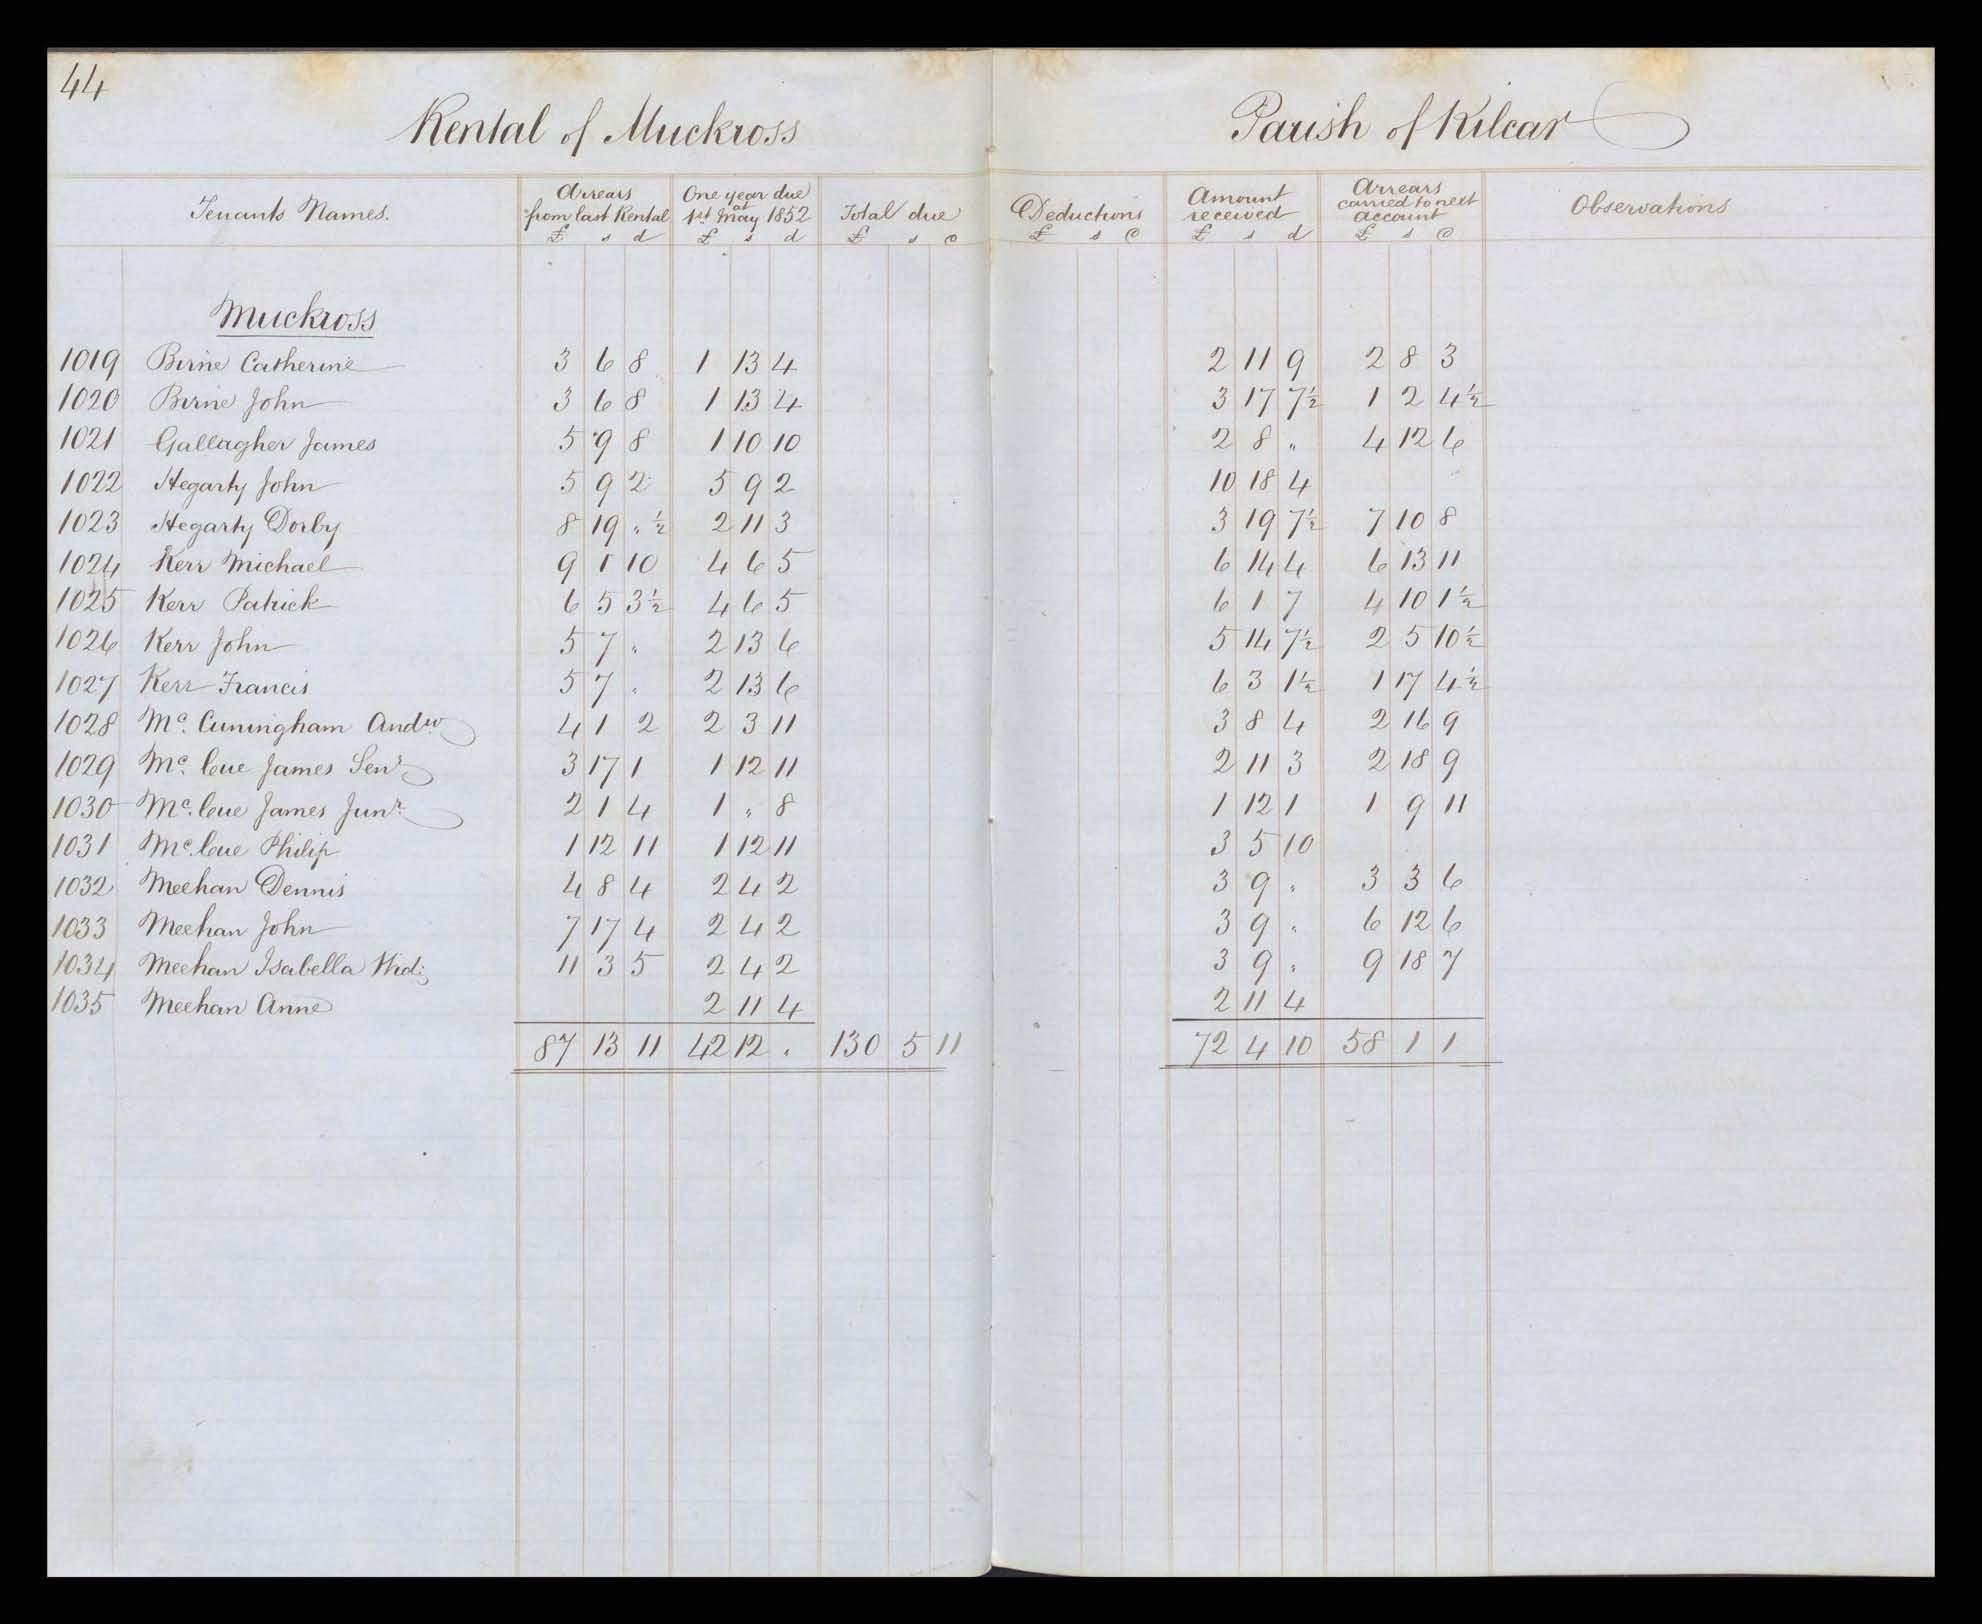 44
Rental of Muckross Parish of Kilcar
Tenants Names. Arrears from last Rental One year due at 1st May 1852 Total due Deductions Amount received Arrears carried to next account Observations
£ s d £ s d £ s d £ s d £ s d £ s d
Muckross
1019 Birne Catherine 3 6 8 1 13 4 2 11 9 2 8 3
1020 Birne John 3 6 8 1 13 4 3 17 7½ 1 2 4½
1021 Gallagher James 5 9 8 1 10 10 2 8 " 4 12 6
1022 Hegarty John 5 9 2 5 9 2 10 18 4
1023 Hegarty Dorby 8 19 "½ 2 11 3 3 19 7½ 7 10 8
1024 Kerr Michael 9 1 10 4 6 5 6 14 4 6 13 11
1025 Kerr Patrick 6 5 3½ 4 6 5 6 1 7 4 10 1½
1026 Kerr John 5 7 " 2 13 6 5 14 7½ 2 5 10½
1027 Kerr Francis 5 7 " 2 13 6 6 3 1½ 1 17 4½
1028 Mc. Cuningham Andw 4 1 2 2 3 11 3 8 4 2 16 9
1029 Mc. Cue James Senr 3 17 1 1 12 11 2 11 3 2 18 9
1030 Mc. Cue James Junr 2 1 4 1 " 8 1 12 1 1 9 11
1031 Mc. Cue Philip 1 12 11 1 12 11 3 5 10
1032 Meehan Dennis 4 8 4 2 4 2 3 9 " 3 3 6
1033 Meehan John 7 17 4 2 4 2 3 9 " 6 12 6
1034 Meehan Isabella Wid: 11 3 5 2 4 2 3 9 " 9 18 7
1035 Meehan Anne 2 11 4 2 11 4
87 13 11 42 12 " 130 5 11 72 4 10 58 1 1